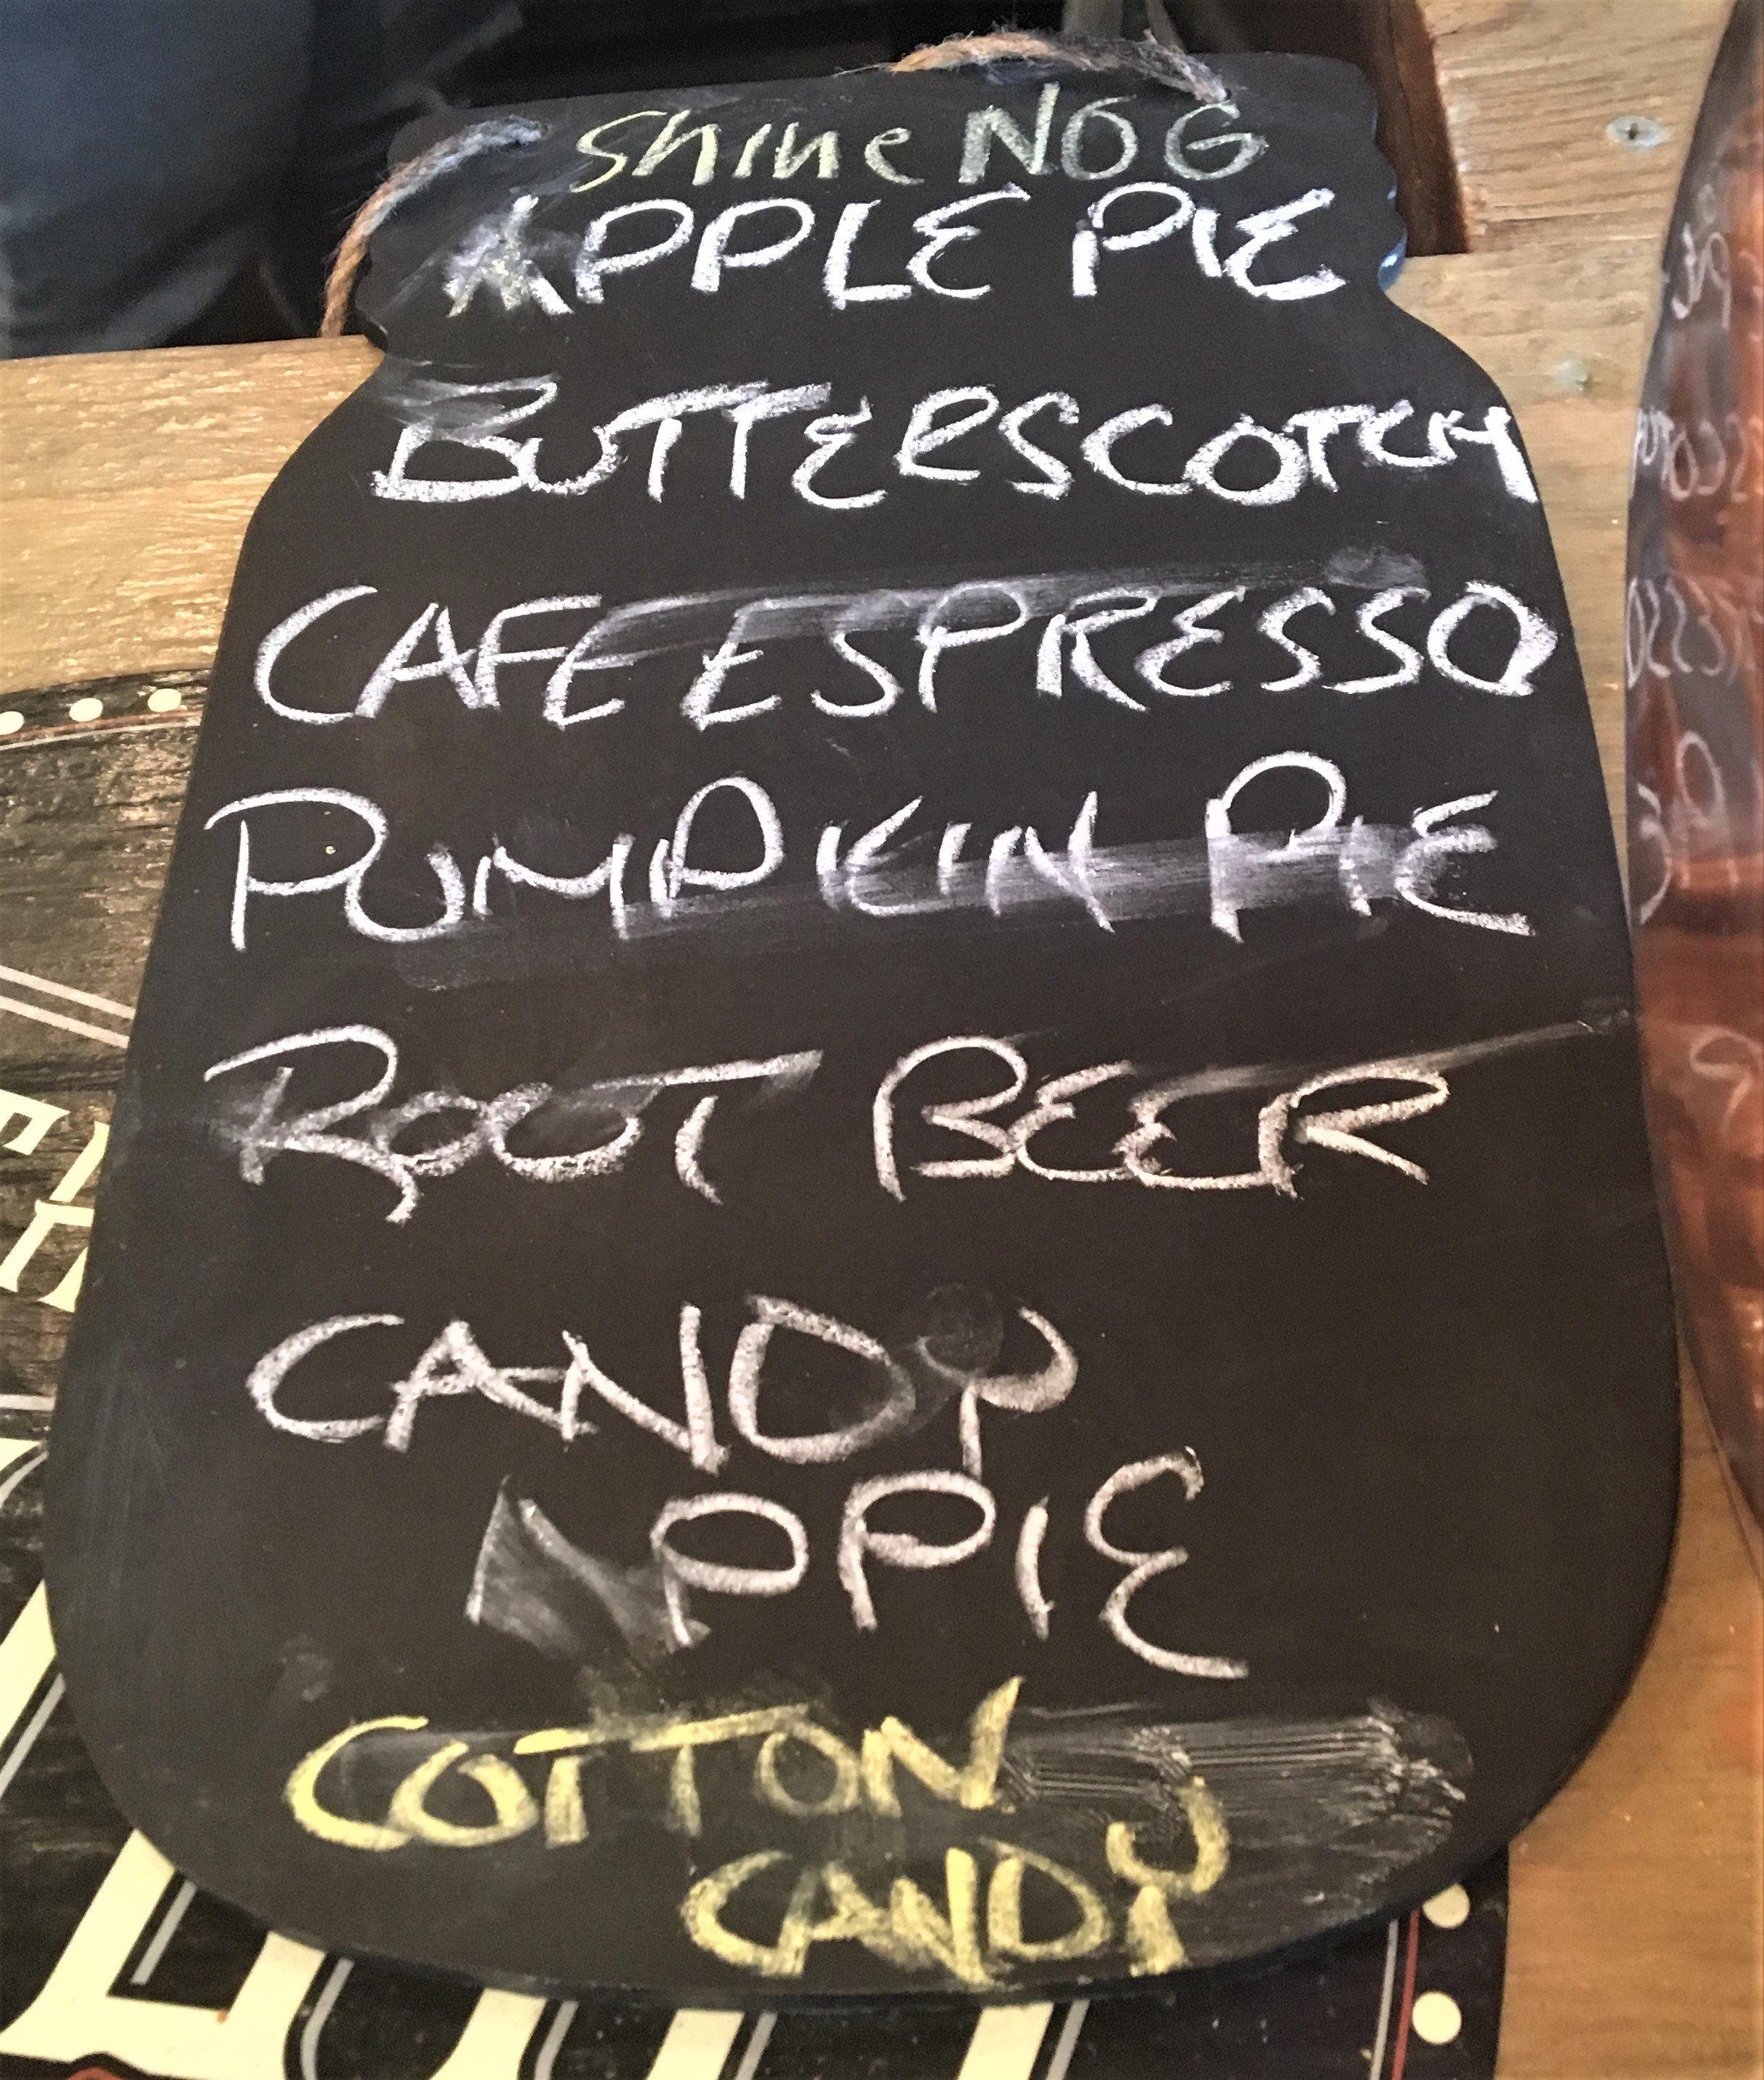 Shine NOG
APPLE PIE
BUTTERSCOTCH
CAFE ESPRESSO
PUMPKIN PIE
ROOT BEER
CANDY
APPLE
COTTON
CANDY